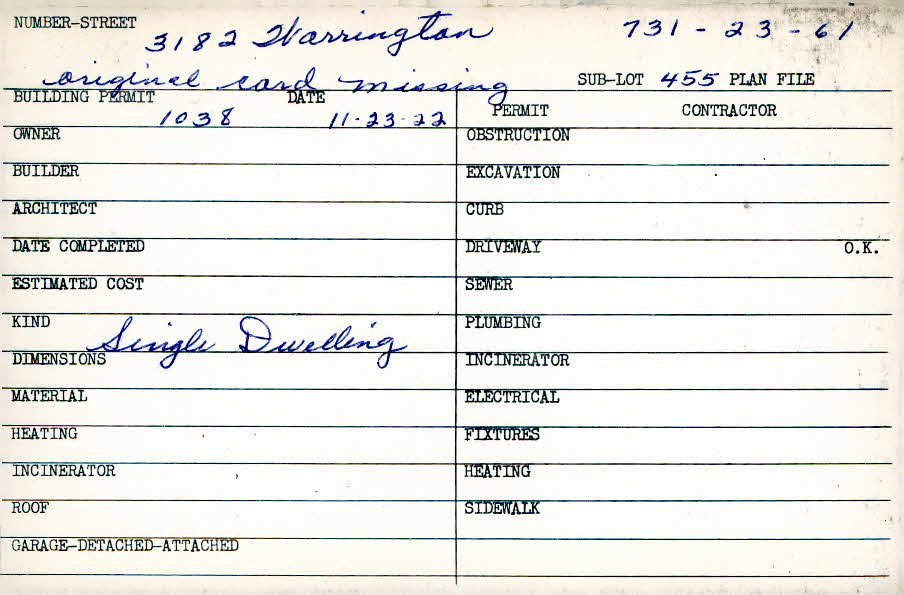 NUMBER-STREET 3182 Warrington 731-23-61
original card missing SUB-LOT 455 PLAN FILE
BUILDING PERMIT 1038 DATE 11-23-22 PERMIT CONTRACTOR
OWNER OBSTRUCTION
BUILDER EXCAVATION
ARCHITECT CURB
DATE COMPLETED DRIVEWAY O.K.
ESTIMATED COST SEWER
KIND Single Dwelling PLUMBING
DIMENSIONS INCINERATOR
MATERIAL ELECTRICAL
HEATING FIXTURES
INCINERATOR HEATING
ROOF SIDEWALK
GARAGE-DETACHED-ATTACHED